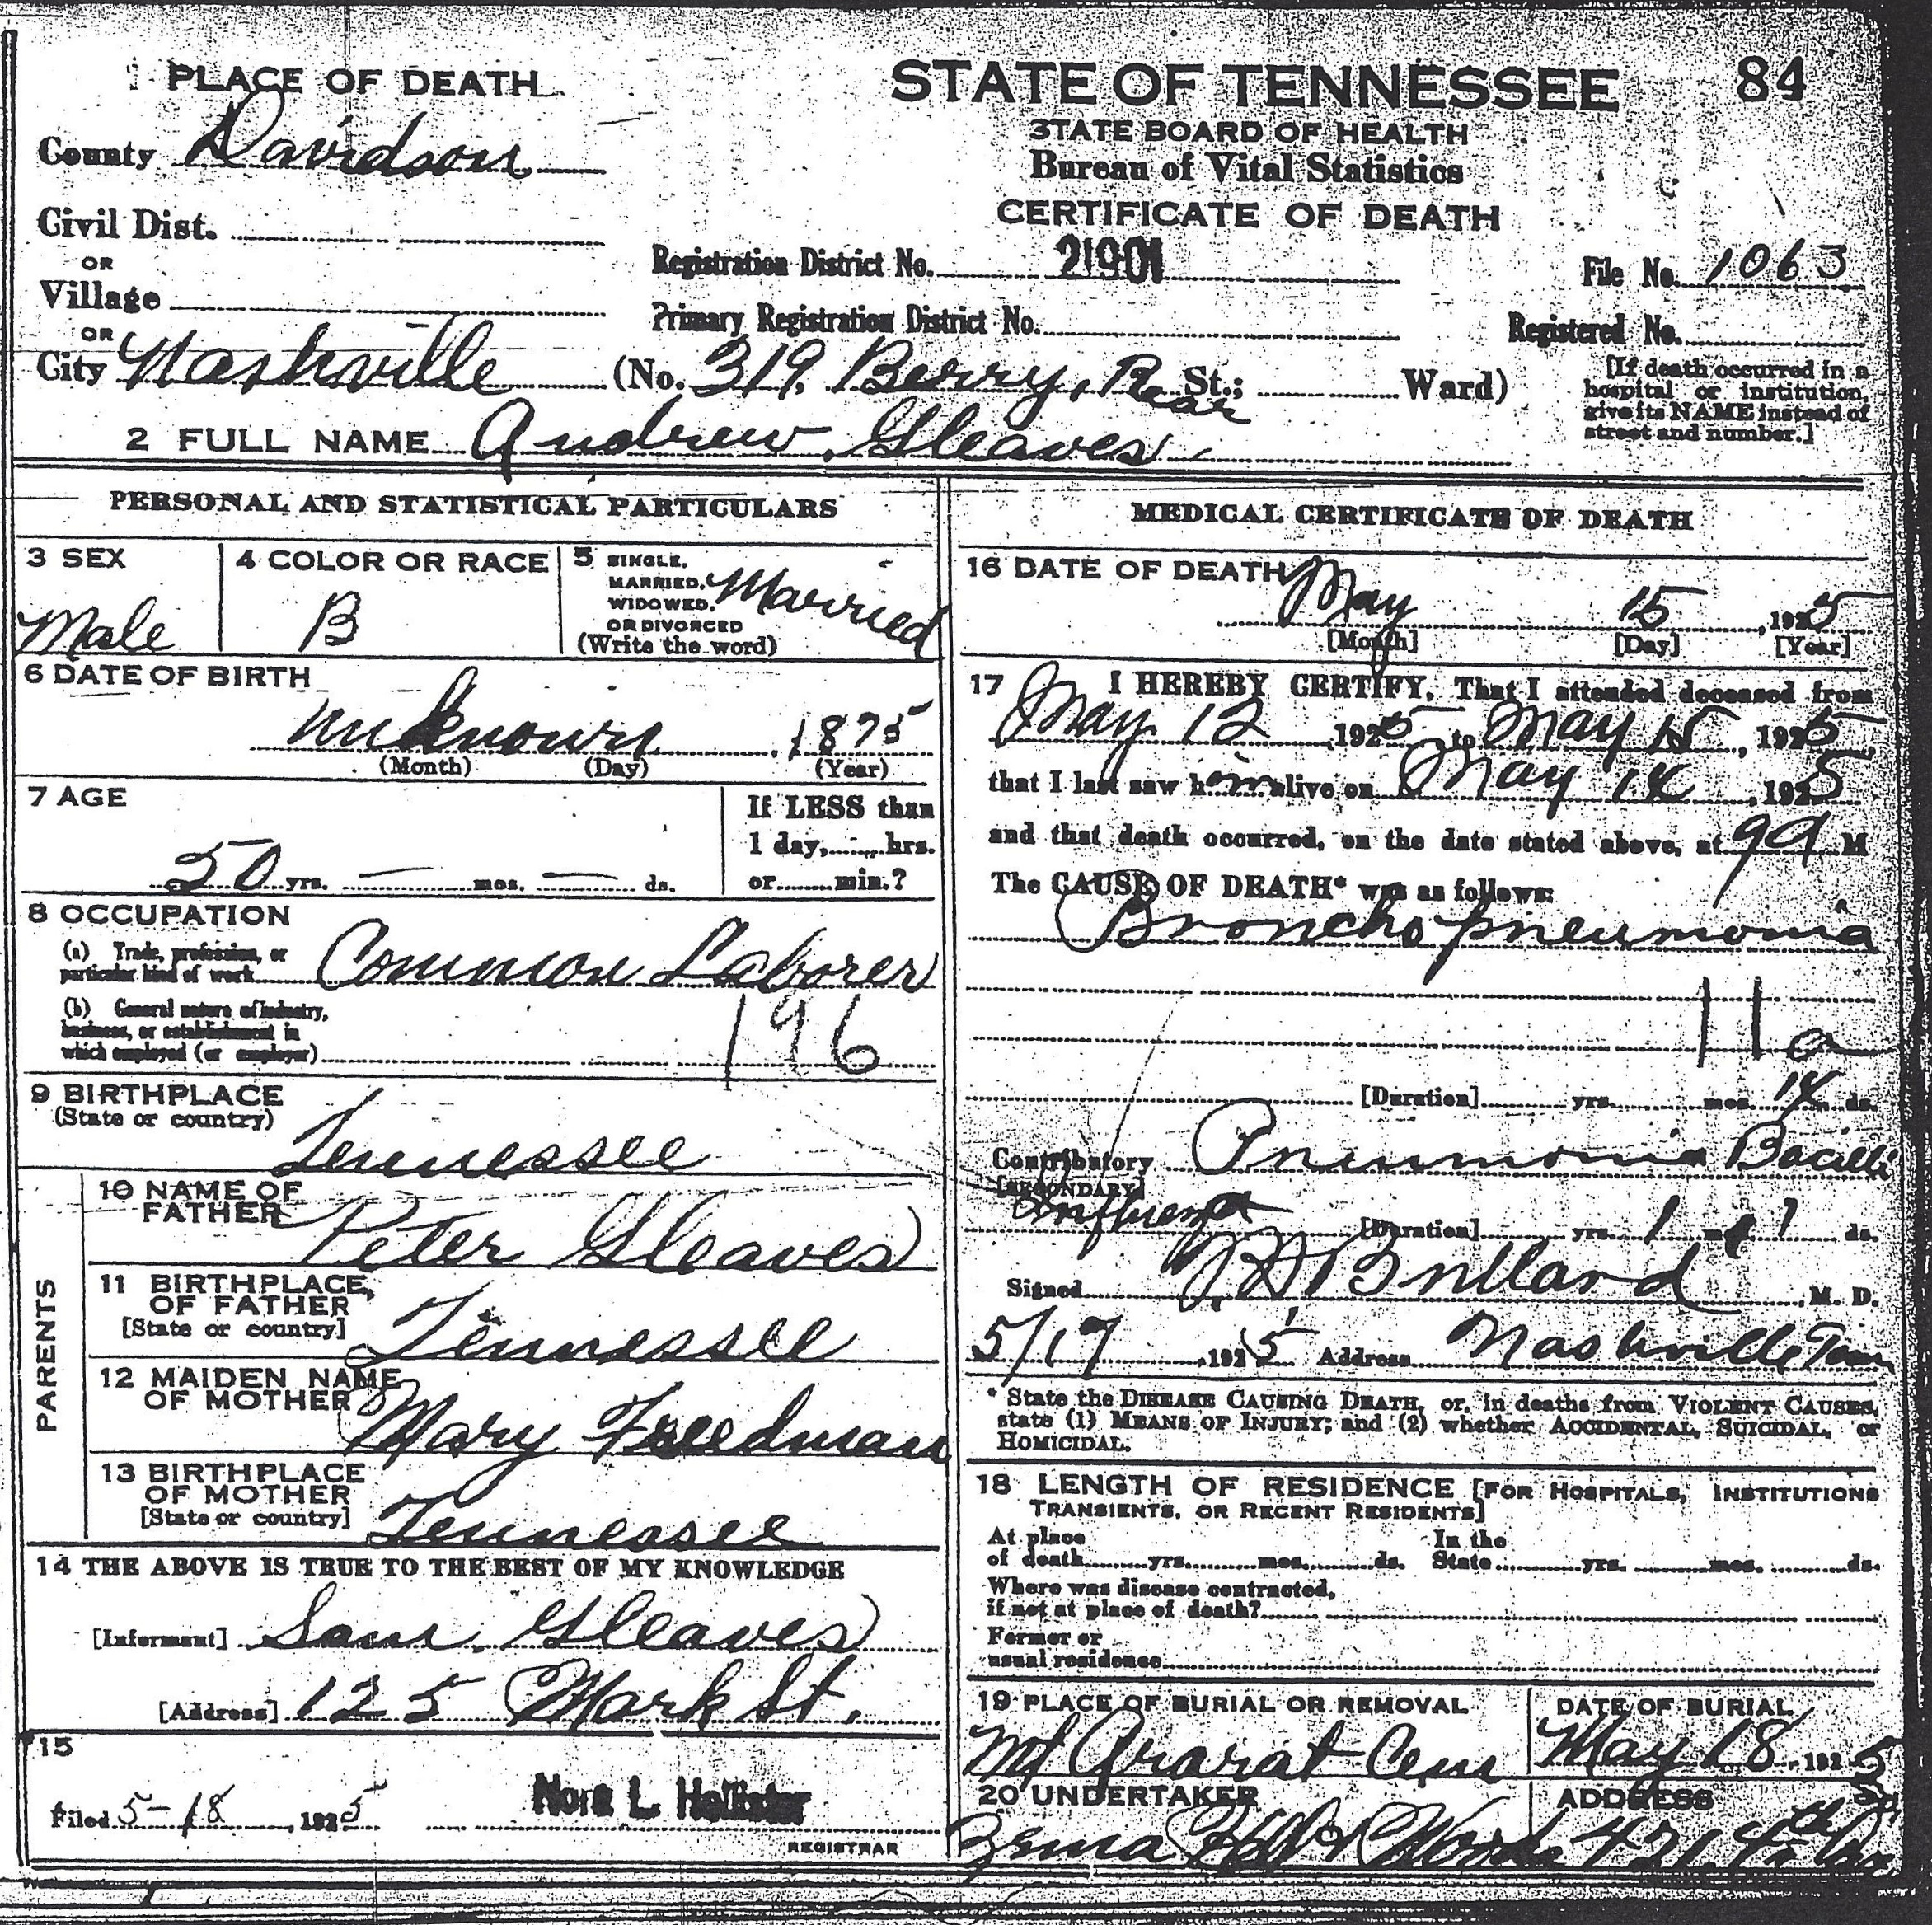 PLACE OF DEATH
STATE OF TENNESSEE 84
STATE BOARD OF HEALTH
Bureau of Vital Statistics
CERTIFICATE OF DEATH
County Davidson
Civil Dist.
OR
Village
OR
City Nashville (No. 319 Berry, Rear St.; Ward)
Registration District No. 2190
File No. 1063
Primary Registration District No.
Registered No.
[If death occurred in a
hospital or institution,
give its NAME instead of
street and number.]
2 FULL NAME Andrew Gleaves
PERSONAL AND STATISTICAL PARTICULARS
3 SEX
Male
4 COLOR OR RACE
B
5 SINGLE,
MARRIED,
WIDOWED,
OR DIVORCED
(Write the word)
Married
6 DATE OF BIRTH
unknown, 1875
(Month) (Day) (Year)
7 AGE
50 yrs. — mos. — ds.
If LESS than
1 day, hrs.
or min.?
8 OCCUPATION
(a) Trade, profession, or
particular kind of work Common Laborer
(b) General nature of industry,
business, or establishment in
which employed (or employer)
196
9 BIRTHPLACE
(State or country)
Tennessee
PARENTS
10 NAME OF
FATHER
Peter Gleaves
11 BIRTHPLACE
OF FATHER
[State or country]
Tennessee
12 MAIDEN NAME
OF MOTHER
Mary Freedman
13 BIRTHPLACE
OF MOTHER
[State or country]
Tennessee
14 THE ABOVE IS TRUE TO THE BEST OF MY KNOWLEDGE
[Informant] Sam Gleaves
[Address] 125 Mark St.
15
Filed 5-18, 1925 Nora L. Hollister
REGISTRAR
MEDICAL CERTIFICATE OF DEATH
16 DATE OF DEATH
May 15, 1925
[Month] [Day] [Year]
17 I HEREBY CERTIFY, That I attended deceased from
May 12 1925 to May 15, 1925
that I last saw him alive on May 14, 1925
and that death occurred, on the date stated above, at 9 a M
The CAUSE OF DEATH* was as follows:
Broncho pneumonia
11a
[Duration] yrs. mos. 14 ds.
Contributory Pneumonia Bacilli
[SECONDARY]
Influenza [Duration] yrs. 1 ds.
Signed M. D.
5/17, 1925 Address Nashville Tenn
* State the DISEASE CAUSING DEATH, or, in deaths from VIOLENT CAUSES,
state (1) MEANS OF INJURY; and (2) whether ACCIDENTAL, SUICIDAL, or
HOMICIDAL.
18 LENGTH OF RESIDENCE [FOR HOSPITALS, INSTITUTIONS
TRANSIENTS, OR RECENT RESIDENTS]
At place
of death yrs. mos. ds.
In the
State yrs. mos. ds.
Where was disease contracted,
if not at place of death?
Former or
usual residence
19 PLACE OF BURIAL OR REMOVAL
Mt Ararat Cem
DATE OF BURIAL
May 18, 1925
20 UNDERTAKER
ADDRESS
Zema Hill 421 4th Av